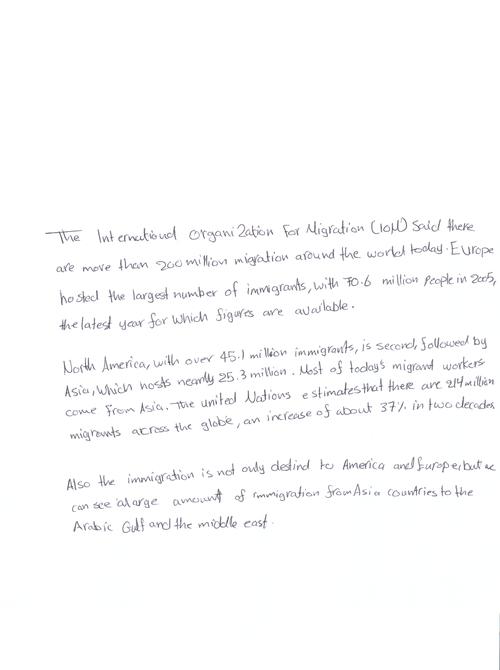 The International Organization For Migration (IOM) said there
are more than 200 million migration around the world today. Europe
hosted the largest number of immigrants, with 70.6 million people in 2005,
the latest year for which figures are available.
North America, with over 45.1 million immigrants, is second, followed by
Asia, which hosts nearly 25.3 million. Most of today's migrant workers
come from Asia. The united Nations estimates that there are 214 million
migrants across the globe, an increase of about 37% in two decades
Also the immigration is not only destind to America and Europe, but we
can see a large amount of immigration from Asia countries to the
Arabic Gulf and the middle east.